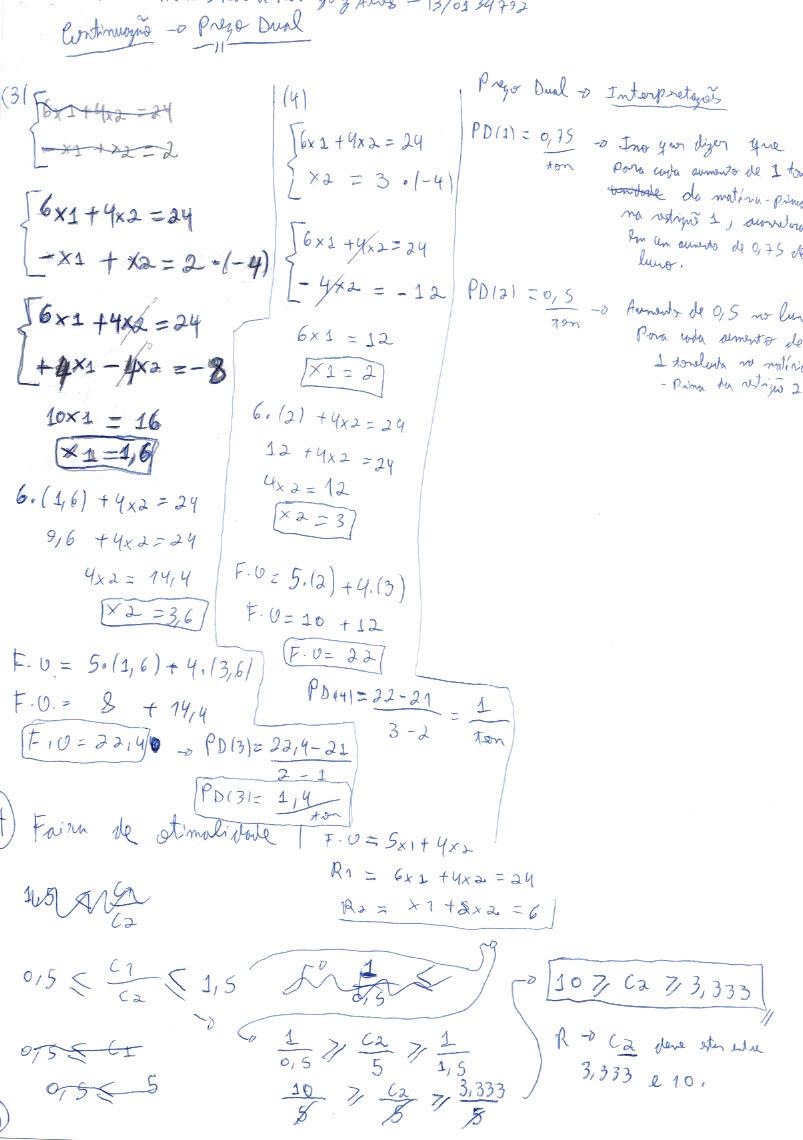 13/0134792
Continuação → Preço Dual
(3)
6x1 + 4x2 = 24
-x1 + x2 = 2
6x1 + 4x2 = 24
-x1 + x2 = 2 · (-4)
6x1 + 4x2 = 24
+4x1 - 4x2 = -8
10x1 = 16
x1 = 1,6
6.(1,6) + 4x2 = 24
9,6 + 4x2 = 24
4x2 = 14,4
x2 = 3,6
F.O = 5.(1,6) + 4.(3,6)
F.O. = 8 + 14,4
F.O = 22,4 → PD(3) = 22,4 - 21
2 - 1
PD(3) = 1,4
ton
(4)
6x1 + 4x2 = 24
x2 = 3 · (-4)
6x1 + 4x2 = 24
- 4x2 = -12
6x1 = 12
x1 = 2
6.(2) + 4x2 = 24
12 + 4x2 = 24
4x2 = 12
x2 = 3
F.O = 5.(2) + 4.(3)
F.O = 10 + 12
F.O = 22
PD(4) = 22 - 21 = 1
3 - 2 ton
Preço Dual → Interpretação
PD(1) = 0,75 → Isso quer dizer que
ton para cada aumento de 1 ton
da matéria-prima
na restrição 1,
em um aumento de 0,75 de
lucro.
PD(2) = 0,5 → Aumento de 0,5 no
ton Para cada aumento de
1 tonelada na
-Prima da restrição 2
Faixa de otimalidade
F.O = 5x1 + 4x2
R1 = 6x1 + 4x2 = 24
R2 = x1 + 2x2 = 6
C1
C2
0,5 ≤ C1 ≤ 1,5
C2
1
0,5 ≤
0,5 ≤ C1
0,5 ≤ 5
1 ≥ C2 ≥ 1
0,5 5 1,5
10 ≥ C2 ≥ 3,333
5 5 5
→ 10 ≥ C2 ≥ 3,333
R → C2 deve estar entre
3,333 e 10.